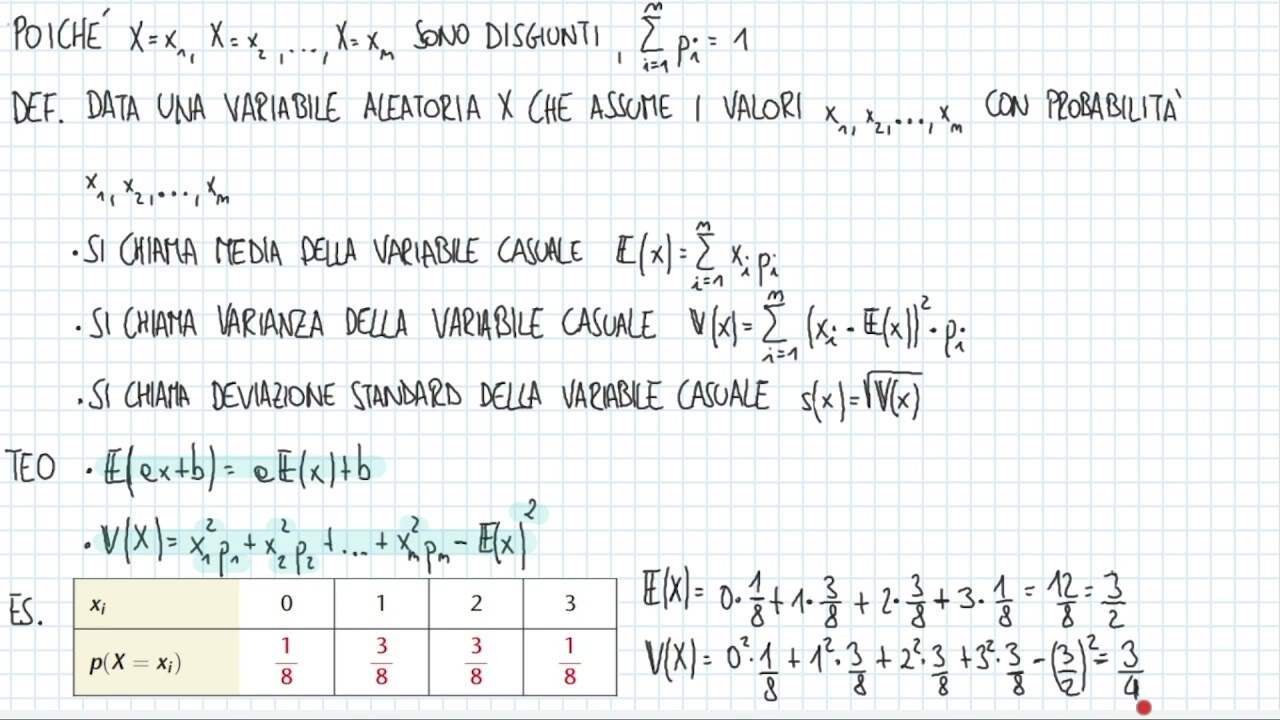 POICHÉ X=x₁, X=x₂, ..., X=xₘ SONO DISGIUNTI, ∑ᵢ₌₁ᵐ pᵢ = 1
DEF. DATA UNA VARIABILE ALEATORIA X CHE ASSUME I VALORI x₁, x₂, ..., xₘ CON PROBABILITÀ
x₁, x₂, ..., xₘ
· SI CHIAMA MEDIA DELLA VARIABILE CASUALE 𝔼(x) = ∑ᵢ₌₁ᵐ xᵢ pᵢ
· SI CHIAMA VARIANZA DELLA VARIABILE CASUALE 𝕍(x) = ∑ᵢ₌₁ᵐ (xᵢ - 𝔼(x))² · pᵢ
· SI CHIAMA DEVIAZIONE STANDARD DELLA VARIABILE CASUALE s(x) = √𝕍(x)
TEO · 𝔼(ax+b) = a𝔼(x)+b
· 𝕍(X) = x₁²p₁ + x₂²p₂ + ... + xₘ²pₘ - 𝔼(x)²
ES. xᵢ 0 1 2 3
p(X = xᵢ) 1/8 3/8 3/8 1/8
𝔼(X) = 0·1/8 + 1·3/8 + 2·3/8 + 3·1/8 = 12/8 = 3/2
V(X) = 0²·1/8 + 1²·3/8 + 2²·3/8 + 3²·3/8 - (3/2)² = 3/4